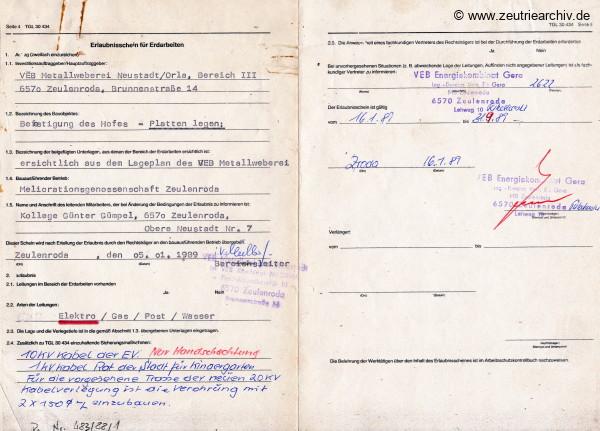 © www.zeutriearchiv.de
Seite 4 TGL 30 434
Erlaubnisschein für Erdarbeiten
1. Antrag (zweifach einzureichen)
1.1. Investitionsauftraggeber/Hauptauftraggeber:
VEB Metallweberei Neustadt/Orla, Bereich III
657o Zeulenroda, Brunnenstraße 14
1.2. Bezeichnung des Bauobjektes:
Befestigung des Hofes - Platten legen;
1.3. Bezeichnung der beigefügten Unterlagen, aus denen der Bereich der Erdarbeiten ersichtlich ist:
ersichtlich aus dem Lageplan des VEB Metallweberei
1.4. Bauausführender Betrieb:
Meliorationsgenossenschaft Zeulenroda
1.5. Name und Anschrift des leitenden Mitarbeiters, der bei Änderung des Bedingungen der Erlaubnis zu informieren ist:
Kollege Günter Gümpel, 657o Zeulenroda,
Obere Neustadt Nr. 7
Dieser Schein wird nach Erteilung der Erlaubnis durch den Rechtsträger an den bauausführenden Betrieb übergeben.
Zeulenroda , den 05. 01. 1989
(Ort) (Datum) Bereichsleiter
6570 Zeulenroda
Brunnenstraße
2. Erlaubnis
2.1. Leitungen im Bereich der Erdarbeiten vorhanden
Ja Nein
2.2. Arten der Leitungen:
Elektro / Gas / Post / Wasser
2.3. Die Lage und die Verlegetiefe ist in die gemäß Abschnitt 1.3. übergebenen Unterlagen eingetragen.
2.4. Zusätzlich zu TGL 30 434 einzuhaltende Sicherungsmaßnahmen:
10KV Kabel der EV. Nur Handschachtung
1kV Kabel Rat der Stadt für Kindergarten
Für die vorgesehene Trasse der neuen 20KV
Kabelverlegung ist die Verrohrung mit
2 x 150 einzubauen.
Nr. 483/88/1
TGL 30 434 Seite 5
2.5. Die Anwesenheit eines fachkundigen Vertreters des Rechtsträgers ist bei der Durchführung der Erdarbeiten erforderlich
Ja Nein
Bei unvorhergesehenen Situationen (z. B. abweichende Lage der Leitungen, Auffinden nicht angegebener Leitungen) ist als fachkundiger Vertreter zu informieren:
VEB Energiekombinat Gera
2622
6570 Zeulenroda
Lehweg 10
Der Erlaubnisschein ist gültig
vom 16.1.89 bis 31.9.89
Zroda 16.1.89
(Ort) (Datum)
VEB Energiekombinat Gera
6570 Zeulenroda
Lehweg
Verlängert
vom bis
(Ort) (Datum)
Die Belehrung der Werktätigen über den Inhalt des Erlaubnisscheines ist im Arbeitsschutzkontrollbuch nachzuweisen.